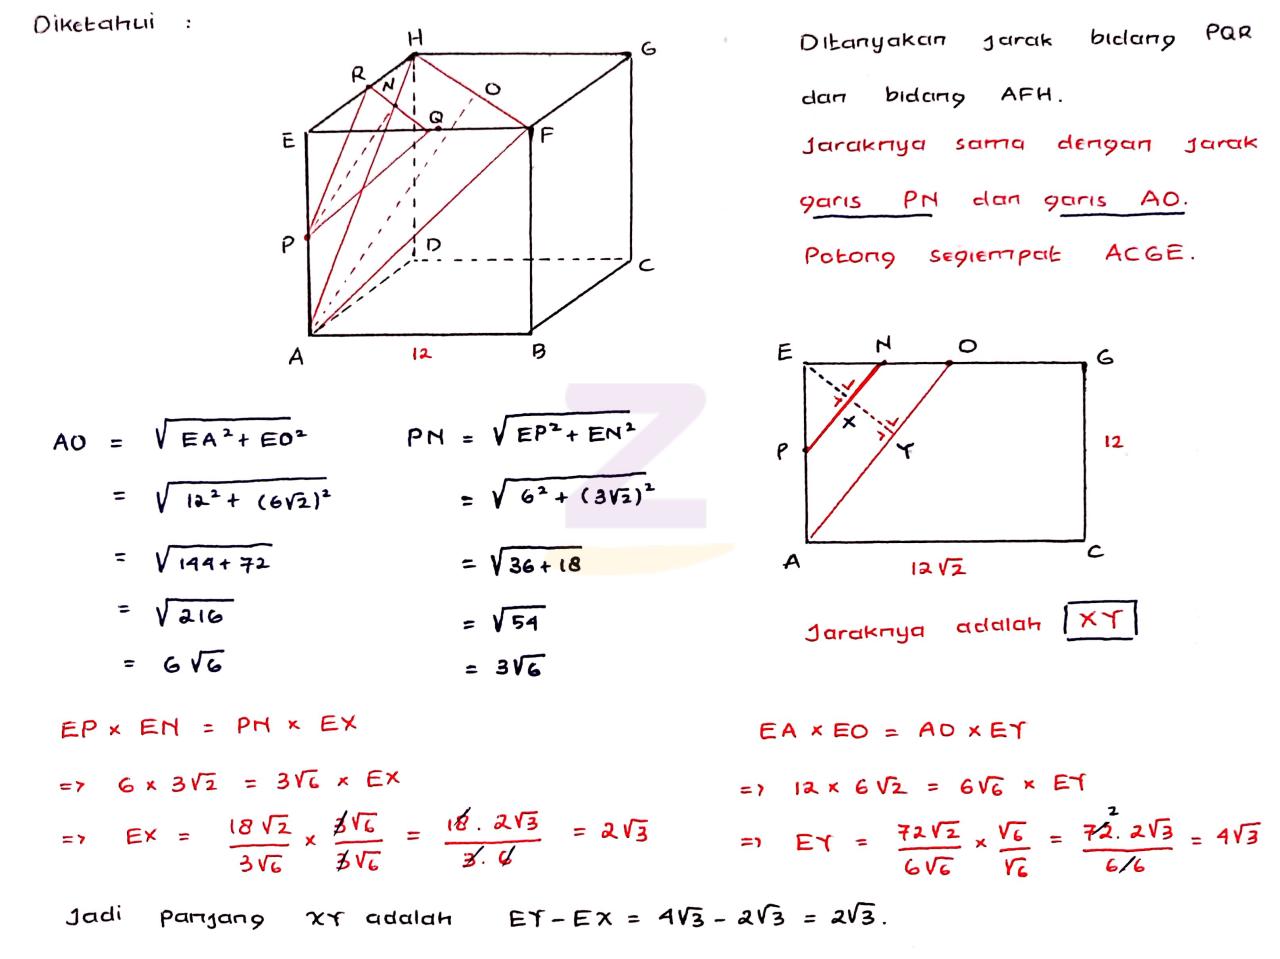 Diketahui :
H
G
R
N
O
Q
E
F
P
D
C
A
12
B
Ditanyakan jarak bidang PQR
dan bidang AFH.
Jaraknya sama dengan jarak
garis PN dan garis AO.
Potong segiempat ACGE.
E
N
O
G
X
Y
P
12
A
C
12√2
Jaraknya adalah XY
AO = √EA² + EO²
= √12² + (6√2)²
= √144 + 72
= √216
= 6√6
PN = √EP² + EN²
= √6² + (3√2)²
= √36 + 18
= √54
= 3√6
EP × EN = PN × EX
=> 6 × 3√2 = 3√6 × EX
=> EX = 18√2/3√6 × 3√6/3√6 = 18.2√3/3.6 = 2√3
EA × EO = AO × EY
=> 12 × 6√2 = 6√6 × EY
=> EY = 72√2/6√6 × √6/√6 = 72.2√3/6/6 = 4√3
2
Jadi panjang XY adalah EY - EX = 4√3 - 2√3 = 2√3.
Z